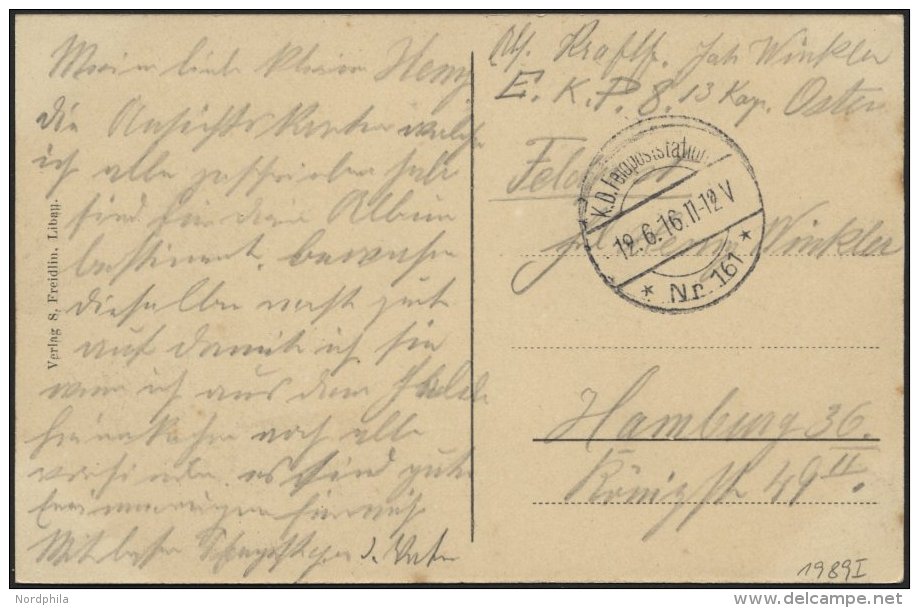 Mein lieber kleiner Heny
die Ansichtskarten welche
ich alle geschrieben habe
sind für dein Album
bestimmt, bewahre
dieselben recht gut
auf damit ich sie
wenn ich aus dem Felde
heimkehre noch alle
vorfinde. es sind gute
Erinnerungen hieran
Mit besten d. Vater
Verlag S. Freidlin, Libau.
Abs. Kraftf. Joh Winkler
E. K. P. 8. 13 Kop. Osten
Feldpost
K.D. Feldpoststation
12.6.16.11-12V
* Nr. 161 *
Winkler
Hamburg 36.
Königstr 49 II.
1989I
Nordphila
delcampe.net